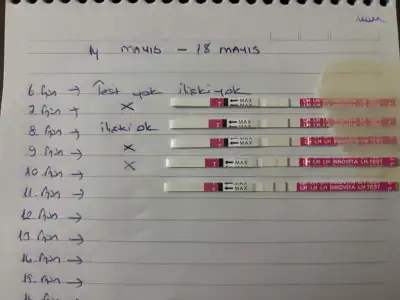 14 MAYIS - 18 MAYIS
6. Gün → Test yok ilişki yok
7. Gün → X T MAX LH LH
8. Gün → ilişki ok T MAX LH LH
9. Gün → X T MAX LH LH INNOVITA LH TEST
10. Gün → X T MAX LH LH INNOVITA LH TEST
11. Gün → T MAX LH LH INNOVITA LH TEST
12. Gün →
13. Gün →
14. Gün →
15. Gün →